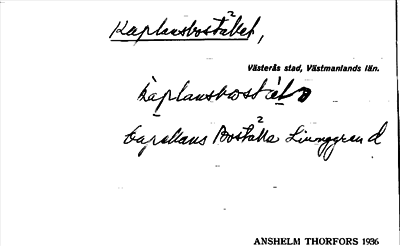 Kaplansbostället,
Västerås stad, Västmanlands län.
kaplansbostället
Capellans Boställe Liunggren d
ANSHELM THORFORS 1936